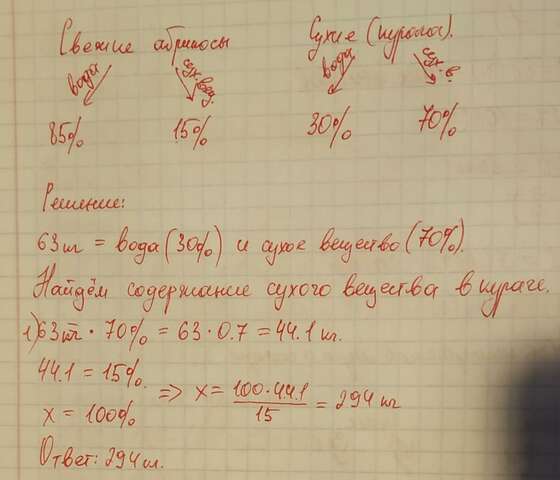 Свежие абрикосы
Сухие (курага).
вода
сух. вещ.
вода
сух. в.
85%
15%
30%
70%
Решение:
63 кг = вода (30%) и сухое вещество (70%).
Найдём содержание сухого вещества в кураге.
1) 63 кг · 70% = 63 · 0.7 = 44.1 кг.
44.1 = 15%.
x = 100%
=> x = 100 · 44.1 / 15 = 294 кг
Ответ: 294 кг.